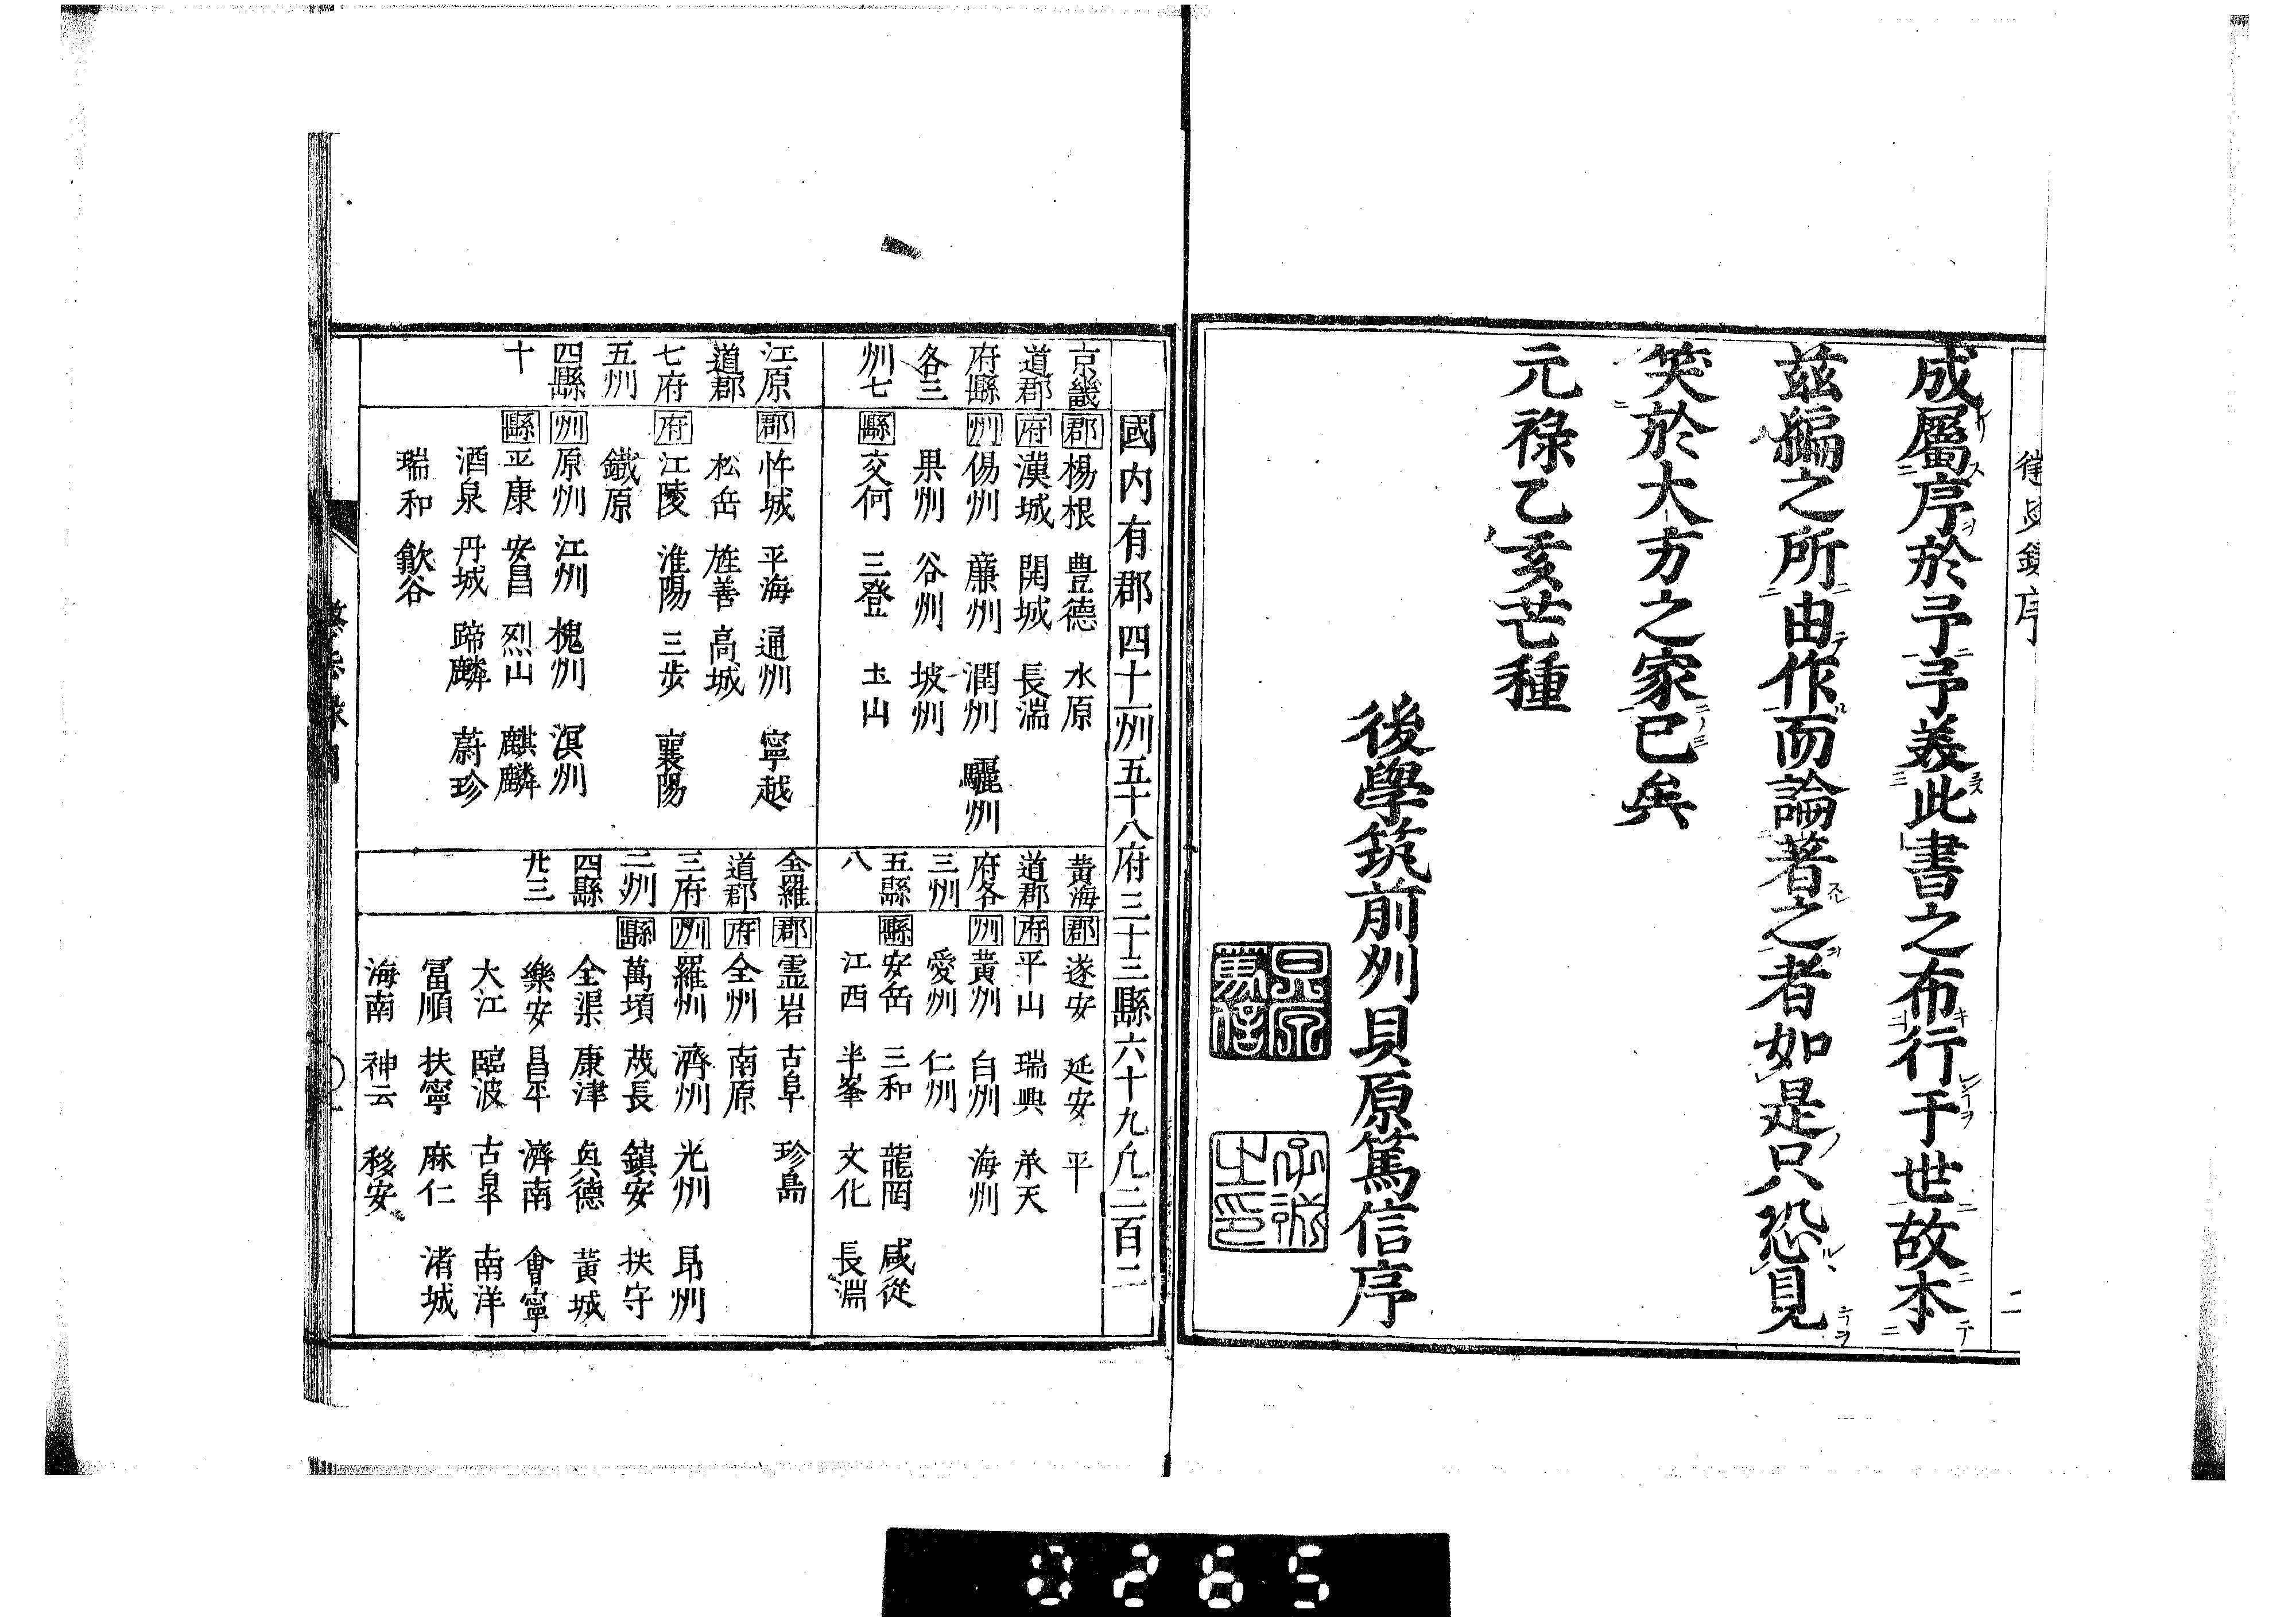 成屬序於予予美此書之布行于世故本
茲編之所由作而論著之者如是只恐見
笑於大方之家已矣
元祿乙亥芒種
後學筑前州貝原篤信序
國内有郡四十一州五十八府三十三縣六十九凡二百二
京畿道郡府縣各三州七
郡楊根 豊德 水原
府漢城 開城 長湍
州傷州 蘼州 潤州 驪州
果州 谷州 坡州
縣交何 三登 土山
黃海道郡府各三州五縣八
郡遂安 延安 平
府平山 瑞興 承天
州黃州 白州 海州
愛州 仁州
縣安岳 三和 龍罔 咸從
江西 半峯 文化 長淵
江原道郡七府五州四縣十
郡忤城 平海 通州 寧越
松岳 旌善 高城
府江陵 淮陽 三步 襄陽
鐵原
州原州 江州 槐州 溟州
縣平康 安昌 烈山 麒麟
酒泉 丹城 蹄麟 蔚珍
瑞和 歙谷
全羅道郡三府二州四縣廿三
郡霊岩 古阜 珍島
府全州 南原
州羅州 濟州 光州 昂州
縣萬頃 茂長 鎮安 扶守
全渠 康津 奐德 黃城
樂安 昌平 濟南 會寧
大江 臨波 古阜 南洋
冨順 扶寧 麻仁 渚城
海南 神云 移安
0265